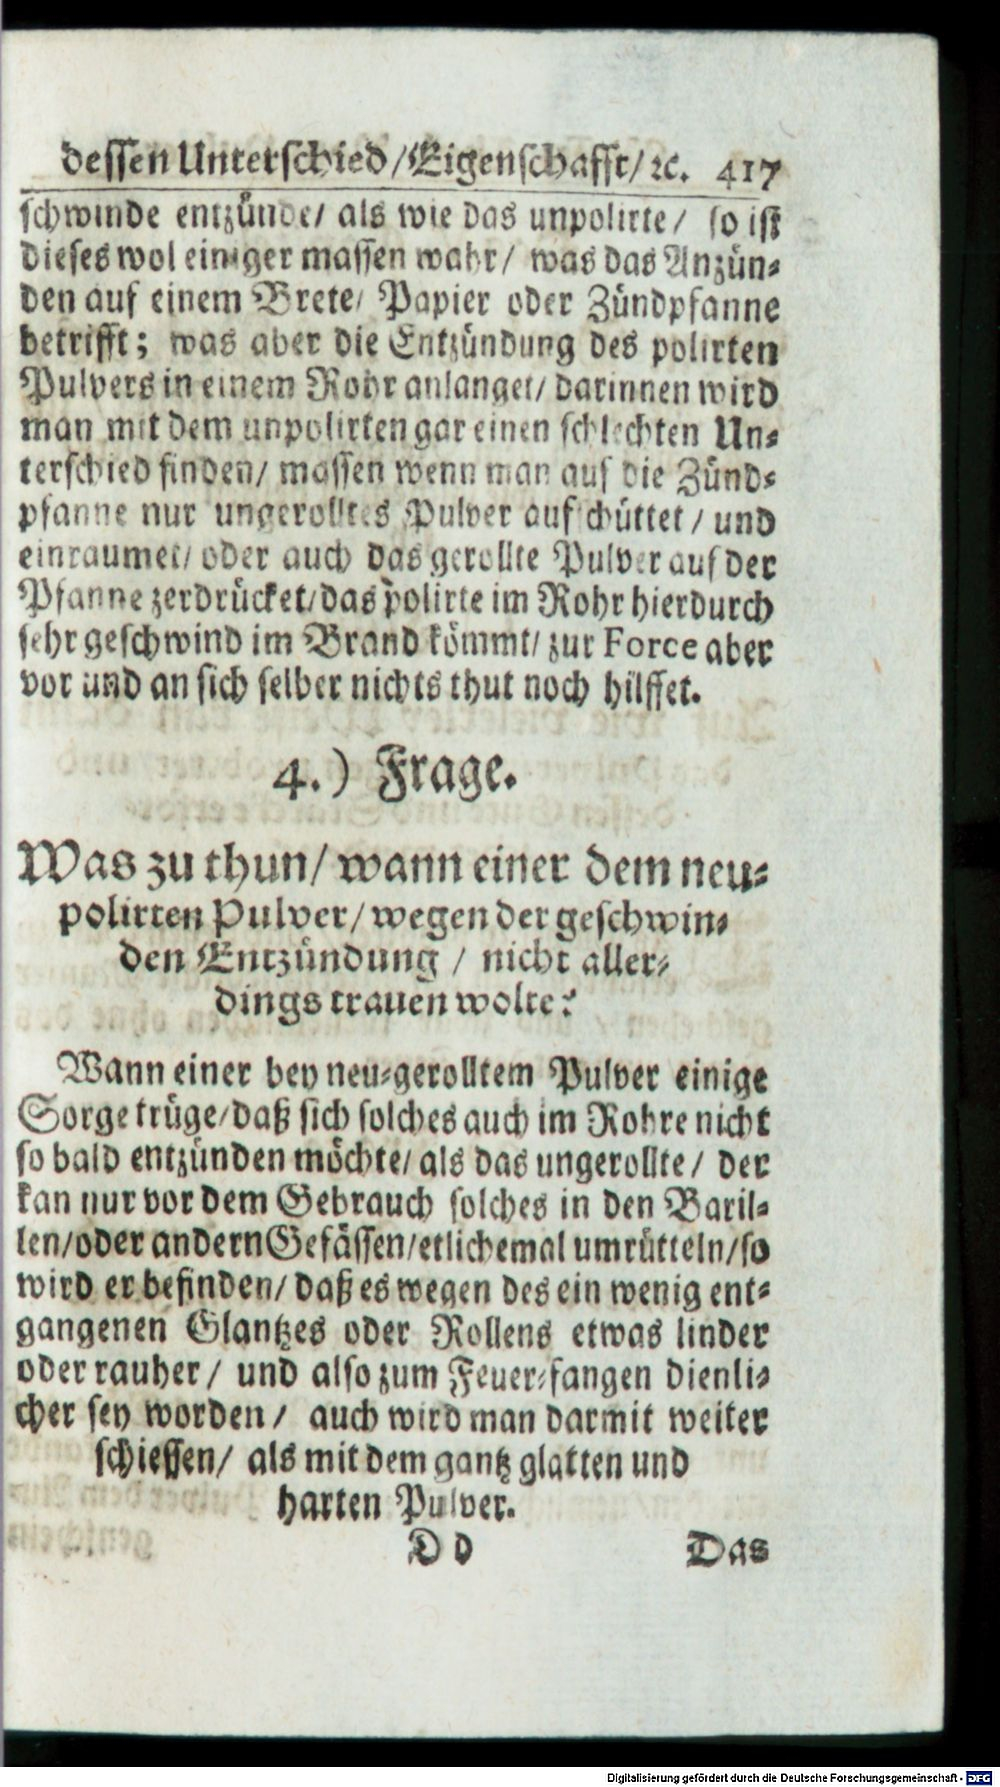 dessen Unterschied/Eigenschafft/ ꝛc. 417
schwinde entzünde/ als wie das unpolirte/ so ist
dieses wol einiger massen wahr/ was das Anzün-
den auf einem Brete/ Papier oder Zündpfanne
betrifft; was aber die Entzündung des polirten
Pulvers in einem Rohr anlanget/ darinnen wird
man mit dem unpolirten gar einen schlechten Un-
terschied finden/ massen wenn man auf die Zünd-
pfanne nur ungerolltes Pulver aufschüttet/ und
einraumet/ oder auch das gerollte Pulver auf der
Pfanne zerdrücket/ das polirte im Rohr hierdurch
sehr geschwind im Brand kömmt/ zur Force aber
vor und an sich selber nichts thut noch hilffet.
4.) Frage.
Was zu thun/ wann einer dem neu-
polirten Pulver/ wegen der geschwin-
den Entzündung / nicht aller-
dings trauen wolte?
Wann einer bey neu-gerolltem Pulver einige
Sorge trüge/ daß sich solches auch im Rohre nicht
so bald entzünden möchte/ als das ungerollte/ der
kan nur vor dem Gebrauch solches in den Baril-
len/ oder andern Gefässen/ etlichemal umrütteln/ so
wird er befinden/ daß es wegen des ein wenig ent-
gangenen Glantzes oder Rollens etwas linder
oder rauher/ und also zum Feuer-fangen dienli-
cher sey worden/ auch wird man darmit weiter
schiessen/ als mit dem gantz glatten und
harten Pulver.
D d Das
Digitalisierung gefördert durch die Deutsche Forschungsgemeinschaft - DFG